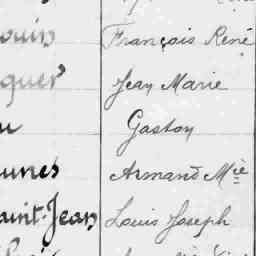 ouin François René
quer Jean Marie
u Gaston
unes Armand Mie
aint-Jean Louis Joseph